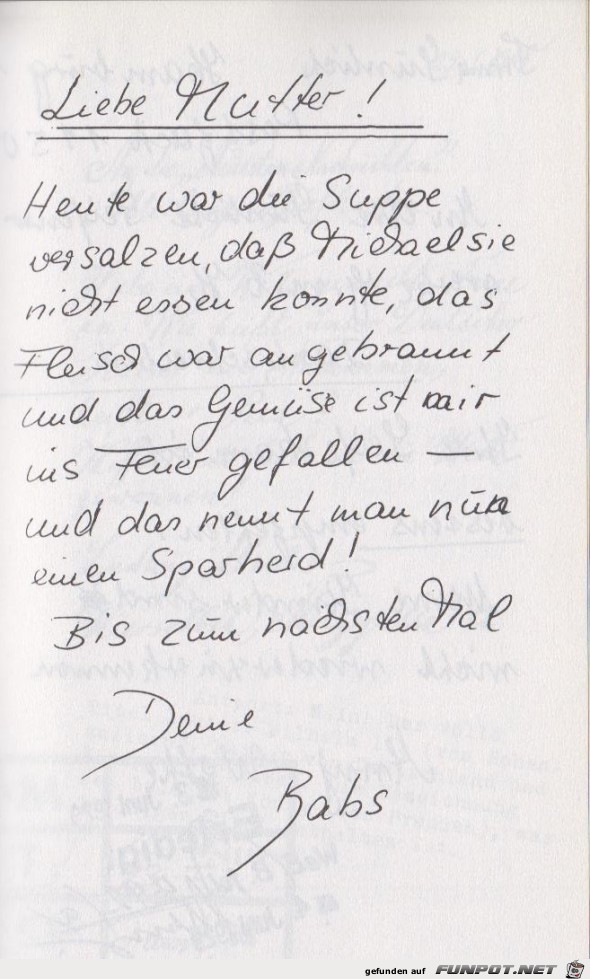 Liebe Mutter!
Heute war die Suppe
versalzen, daß Michael sie
nicht essen konnte, das
Fleisch war angebrannt
und das Gemüse ist mir
ins Feuer gefallen —
und das nennt man nun
einen Sparherd!
Bis zum nächsten Mal
Deine
Babs
gefunden auf FUNPOT.NET